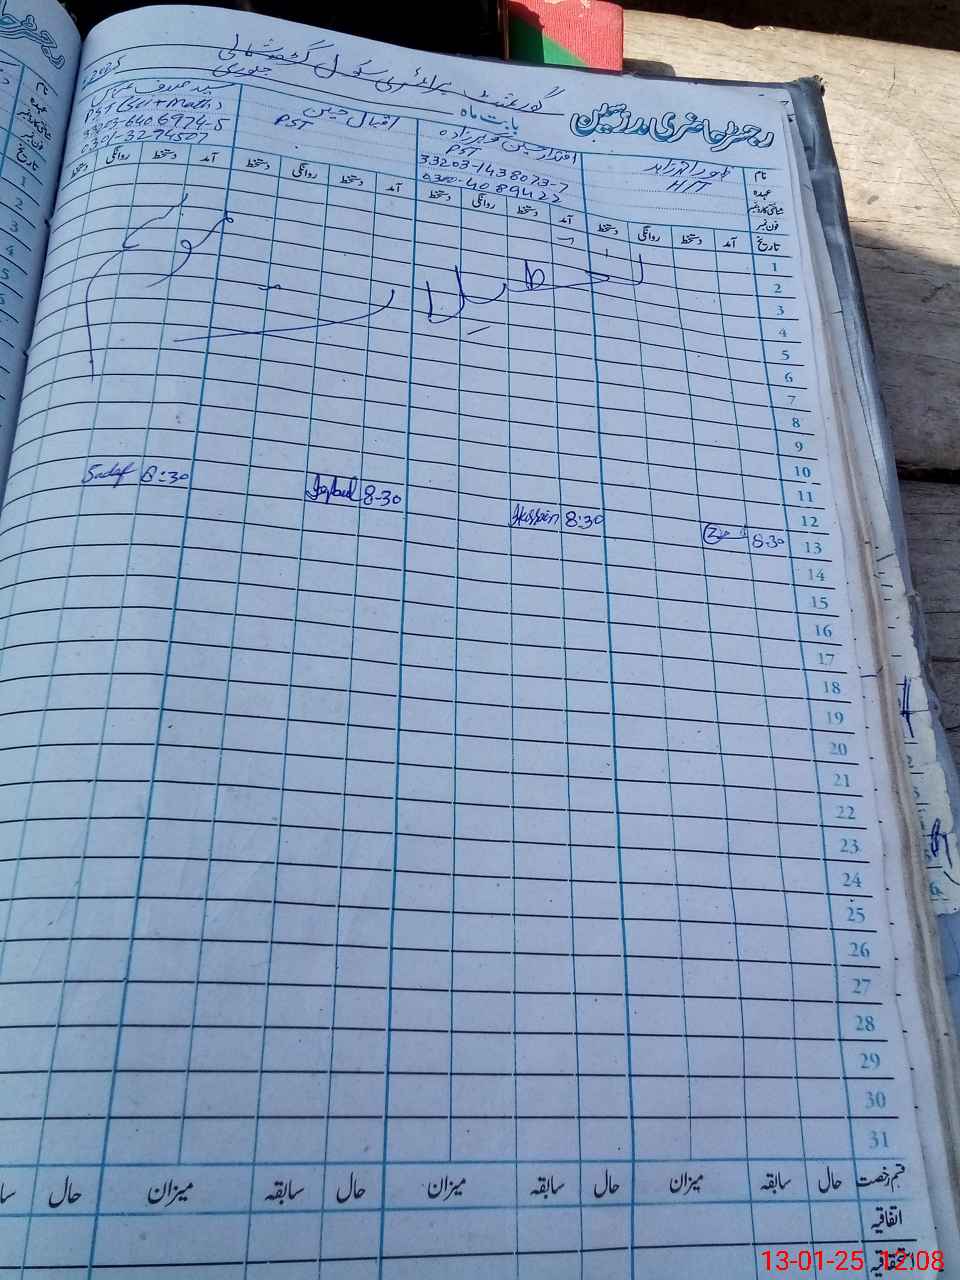 رجسٹر حاضری مدرسین
بابت ماہ جنوری 2025
گورنمنٹ پرائمری سکول
نام
عہدہ
شناختی کارڈ نمبر
فون نمبر
H/T
PST
33203-1438073-7
0300-4089422
اقبال حسین
PST
PST (Sci + Math)
33203-6406974-5
0301-3294507
تاریخ آمد دستخط روانگی دستخط آمد دستخط روانگی دستخط آمد دستخط روانگی دستخط آمد دستخط روانگی دستخط
تعطیلات
موسم
سرما
1
2
3
4
5
6
7
8
9
10
11
12
13 8:30 8:30 Hussain 8-30 Iqbal 8:30 Sadaf
14
15
16
17
18
19
20
21
22
23
24
25
26
27
28
29
30
31
قسم رخصت حال سابقہ میزان حال سابقہ میزان حال سابقہ میزان حال
اتفاقیہ
استحقاقیہ
13-01-25 12:08